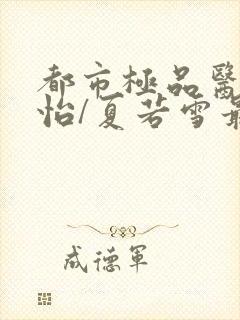 都市極品醫
怡/夏若雪最
成德軍